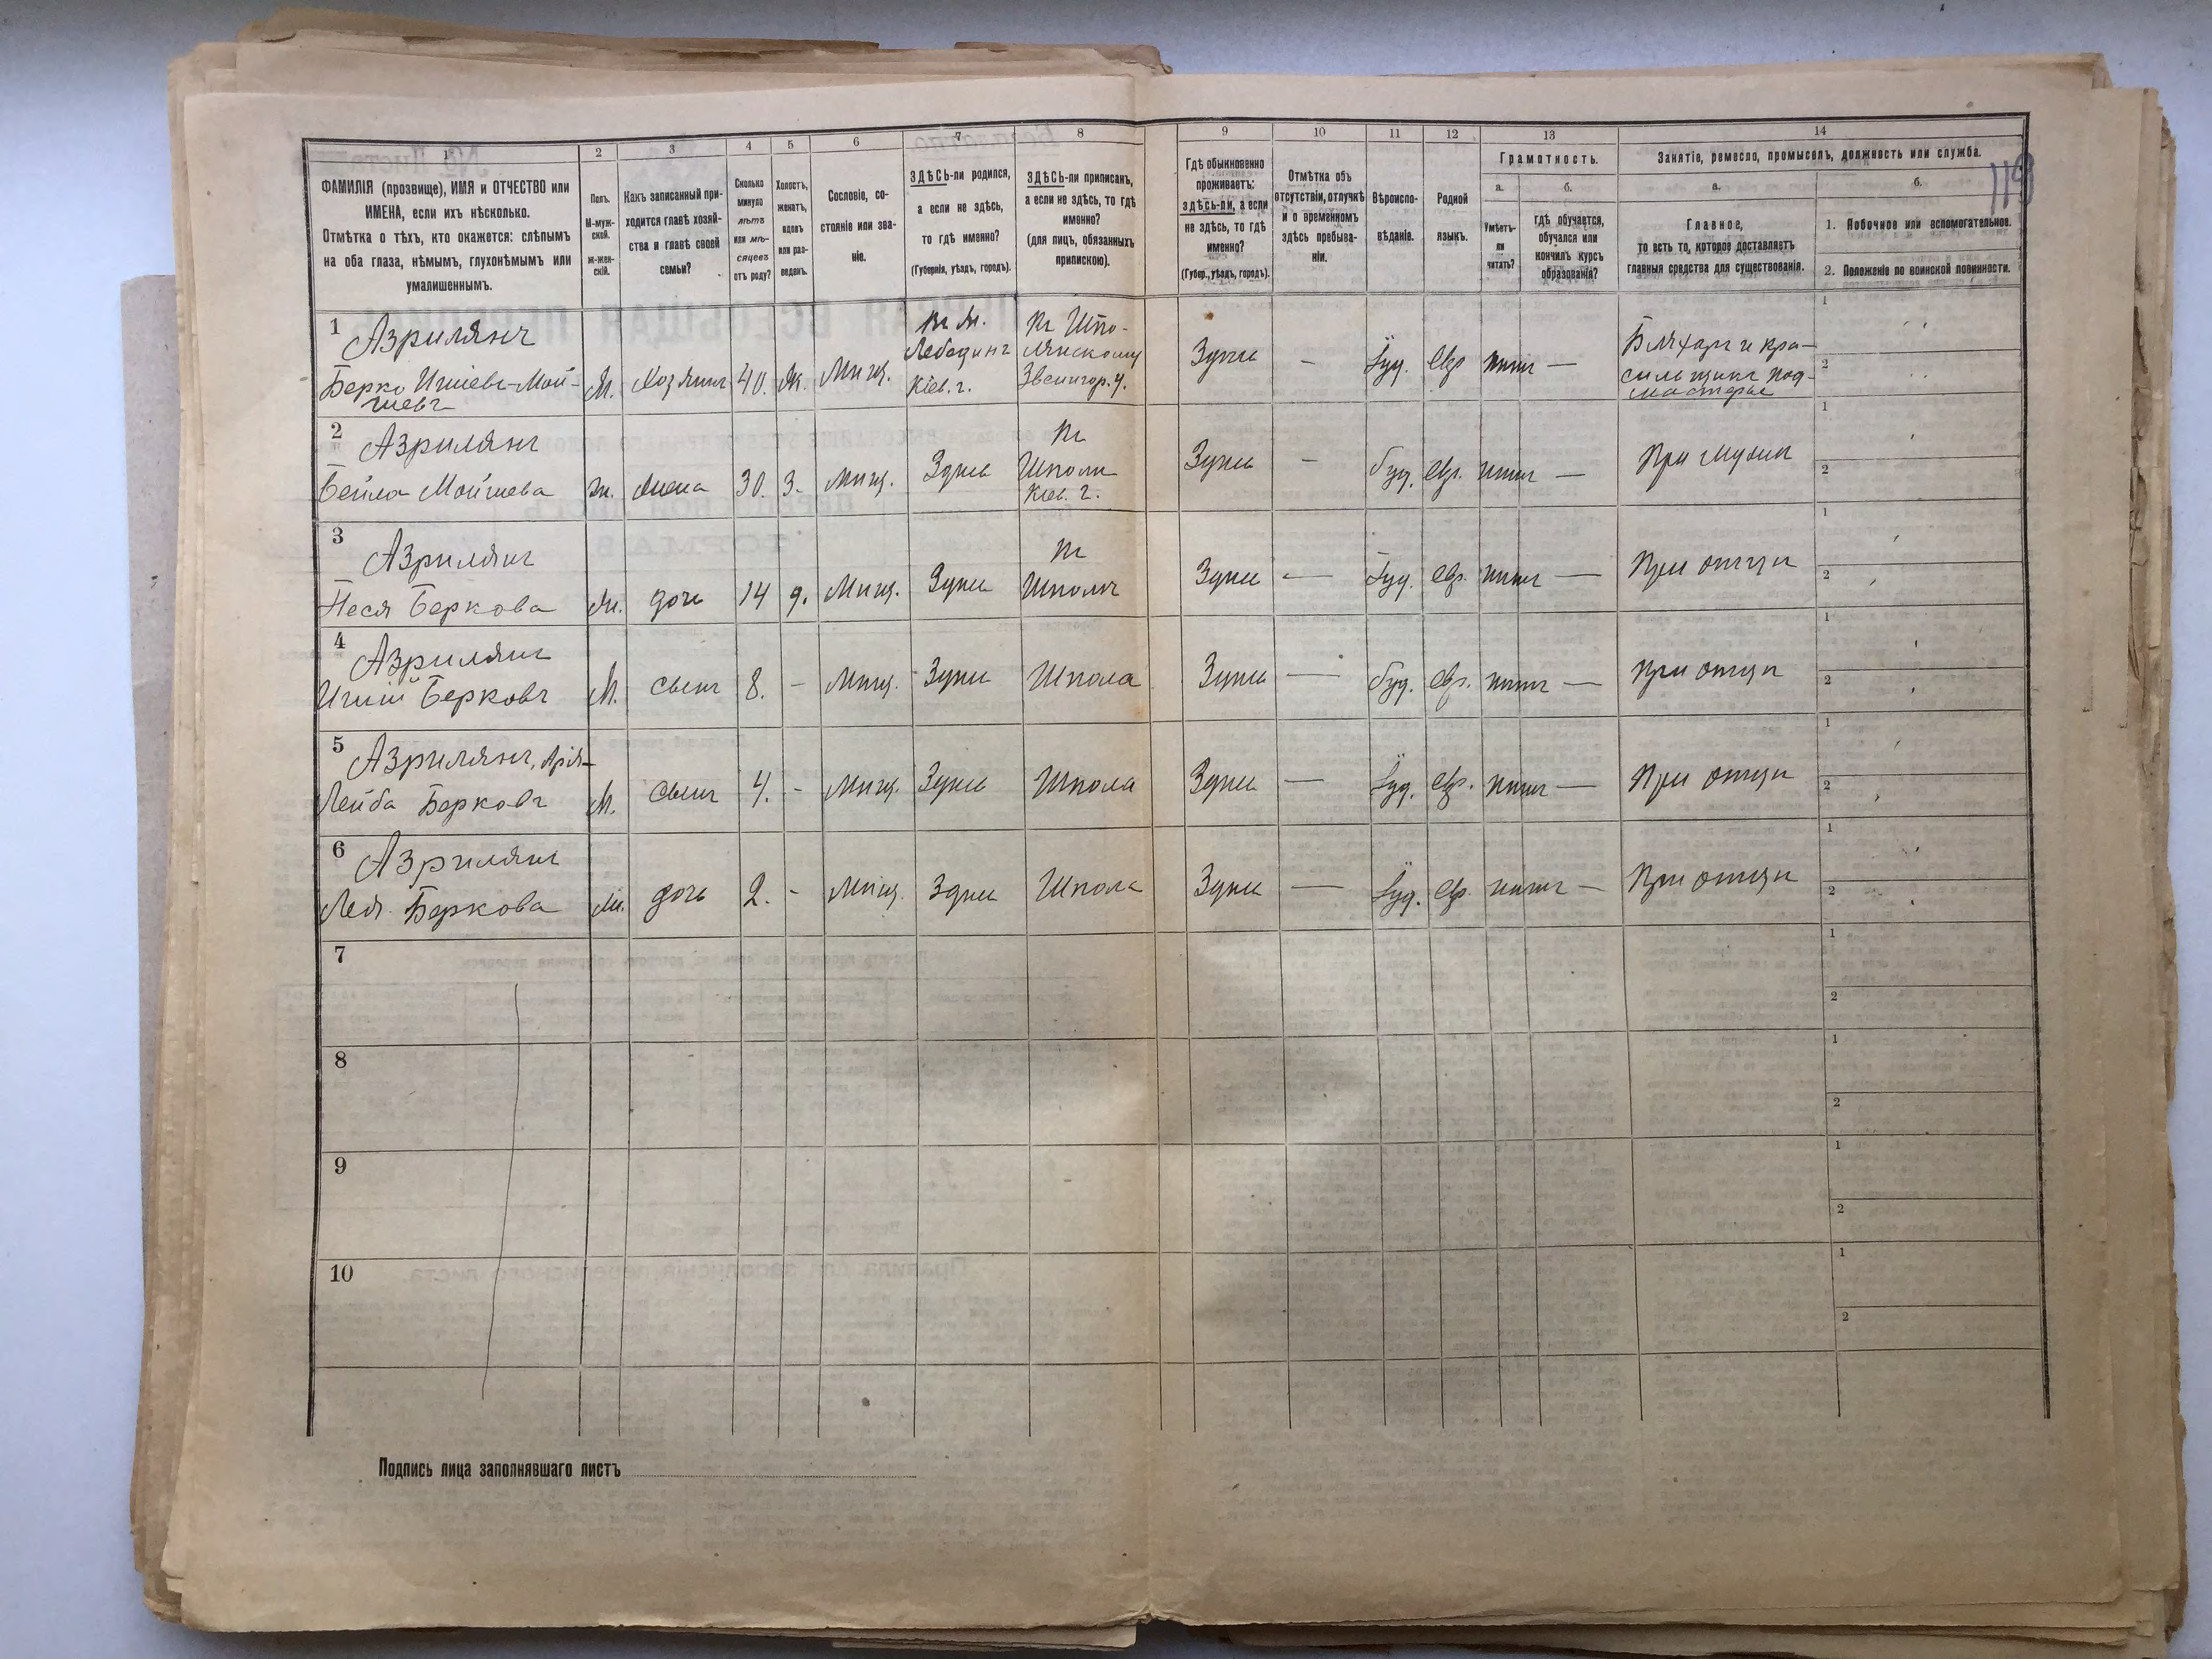 1 2 3 4 5 6 7 8 9 10 11 12 13 14
ФАМИЛІЯ (прозвище), ИМЯ и ОТЧЕСТВО или
ИМЕНА, если ихъ нѣсколько.
Отмѣтка о тѣхъ, кто окажется: слѣпымъ
на оба глаза, нѣмымъ, глухонѣмымъ или
умалишеннымъ.
Полъ.
М-муж-
ской.
Ж-жен-
скій.
Какъ записанный при-
ходится главѣ хозяй-
ства и главѣ своей
семьи?
Сколько
минуло
лѣтъ
или мѣ-
сяцевъ
отъ роду?
Холостъ,
женатъ,
вдовъ
или раз-
веденъ.
Сословіе, со-
стояніе или зва-
ніе.
ЗДѢСЬ-ли родился,
а если не здѣсь,
то гдѣ именно?
(Губернія, уѣздъ, городъ).
ЗДѢСЬ-ли приписанъ,
а если не здѣсь, то гдѣ
именно?
(для лицъ, обязанныхъ
припискою).
Гдѣ обыкновенно
проживаетъ:
здѣсь-ли, а если
не здѣсь, то гдѣ
именно?
(Губер., уѣздъ, городъ).
Отмѣтка объ
отсутствіи, отлучкѣ
и о временномъ
здѣсь пребыва-
ніи.
Вѣроиспо-
вѣданіе.
Родной
языкъ.
Грамотность.
а. б.
Умѣетъ-
ли
читать?
гдѣ обучается,
обучался или
кончилъ курсъ
образованія?
Занятіе, ремесло, промыселъ, должность или служба.
а. б.
Главное,
то есть то, которое доставляетъ
главныя средства для существованія.
1. Побочное или вспомогательное.
2. Положеніе по воинской повинности.
119
1 Азрилянъ
Берко Ишіевъ-Мой-
шевъ
М. Хозяинъ 40. Ж. Мѣщ.
въ м.
Лебединъ
Кіев. г.
къ Шпо-
лянскому
Звенигор. у.
Здѣсь - Іуд. Евр нѣтъ —
Бляхарь и кра-
сильщикъ под-
мастерье
1
2
2 Азрилянъ
Бейла Мойшева Ж. жена 30. З. Мѣщ. Здѣсь
къ
Шполѣ
Кіев. г.
Здѣсь - Іуд. Евр. нѣтъ — При мужѣ
1
2
3 Азрилянъ
Песя Беркова Ж. дочь 14 д. Мѣщ. Здѣсь
къ
Шполѣ
Здѣсь — Іуд. Евр. нѣтъ — При отцѣ
1
2
4 Азрилянъ
Ишій Берковъ М. сынъ 8. - Мѣщ. Здѣсь Шпола Здѣсь — Іуд. Евр. нѣтъ — При отцѣ
1
2
5 Азрилянъ, Арія-
Лейба Берковъ М. сынъ 4. - Мѣщ. Здѣсь Шпола Здѣсь — Іуд. Евр. нѣтъ — При отцѣ
1
2
6 Азрилянъ
Лея Беркова Ж. дочь 2. - Мѣщ. Здѣсь Шпола Здѣсь — Іуд. Евр. нѣтъ — При отцѣ
1
2
7
1
2
8
1
2
9
1
2
10
1
2
Подпись лица заполнявшаго листъ